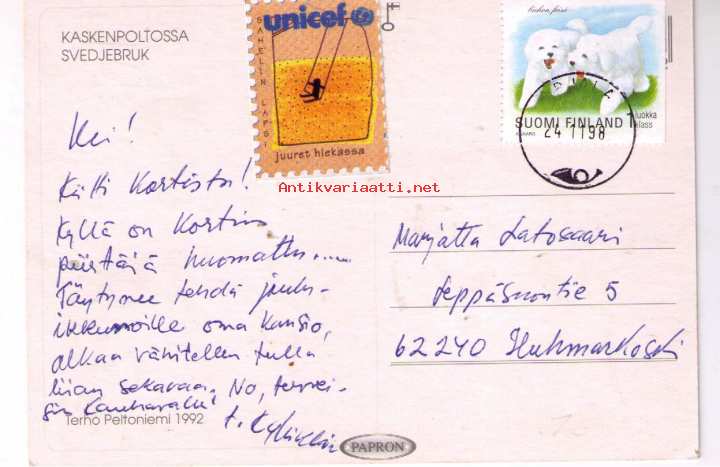 KASKENPOLTOSSA
SVEDJEBRUK
unicef
SAHELIN LAPSI
juuret hiekassa
Antikvariaatti.net
bichon frisé
SUOMI FINLAND 1
luokka
klass
24 11 98
Hei!
Kiitti Kortista!
Kyllä on Kortin
piirtäjä huomattu.....
Täytynee tehdä joulu-
ikkunoille oma kansio,
alkaa vähitellen tulla
liian sekavaa. No, tervei-
sin Kauhavalle!
t.
Terho Peltoniemi 1992
PAPRON
Marjatta Latosaari
Seppäsuontie 5
62240